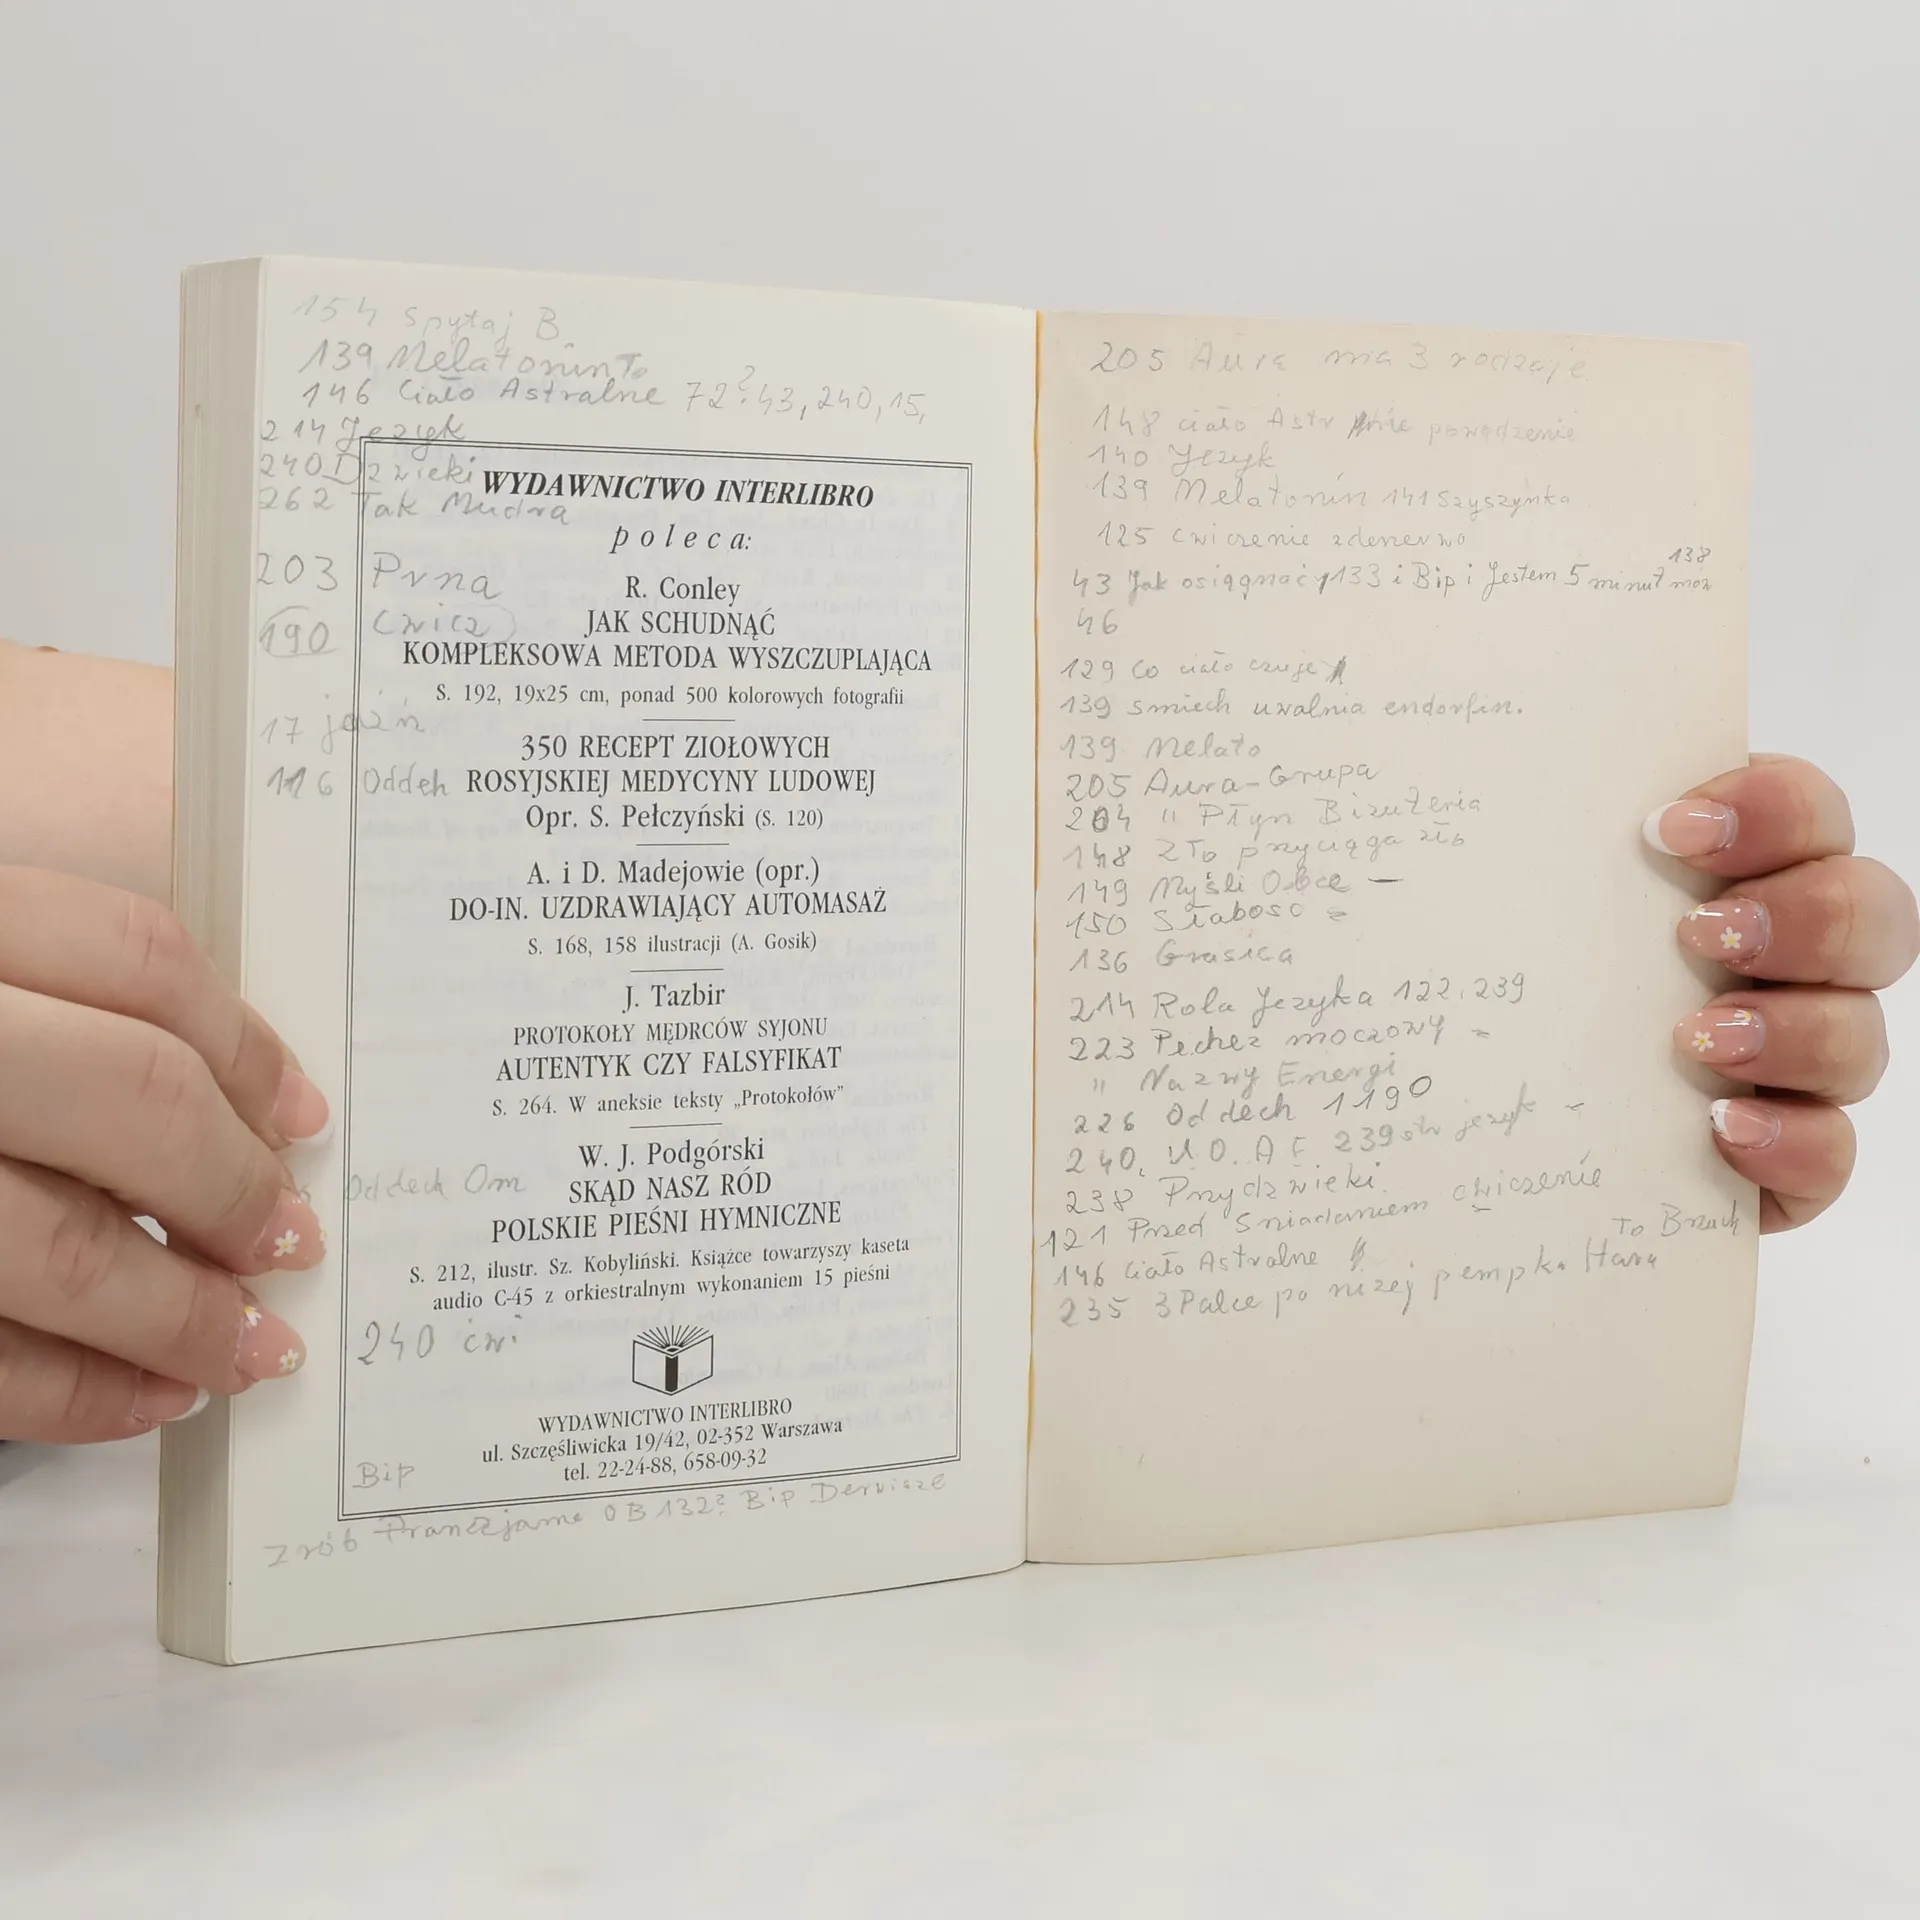 154 Spytaj B
139 Melatonin To
146 Ciało Astralne 72? 43, 240, 15,
214 Język
240 Dzwięki
262 Tak Mudra
203 Prna
190 Cwicz
17 jaźń
116 Oddeh
Oddech Om
240 ćwi
Bip
Zrób OB 132? Bip Derwisze
WYDAWNICTWO INTERLIBRO
poleca:
R. Conley
JAK SCHUDNĄĆ
KOMPLEKSOWA METODA WYSZCZUPLAJĄCA
S. 192, 19x25 cm, ponad 500 kolorowych fotografii
350 RECEPT ZIOŁOWYCH
ROSYJSKIEJ MEDYCYNY LUDOWEJ
Opr. S. Pełczyński (S. 120)
A. i D. Madejowie (opr.)
DO-IN. UZDRAWIAJĄCY AUTOMASAŻ
S. 168, 158 ilustracji (A. Gosik)
J. Tazbir
PROTOKOŁY MĘDRCÓW SYJONU
AUTENTYK CZY FALSYFIKAT
S. 264. W aneksie teksty „Protokołów”
W. J. Podgórski
SKĄD NASZ RÓD
POLSKIE PIEŚNI HYMNICZNE
S. 212, ilustr. Sz. Kobyliński. Książce towarzyszy kaseta
audio C-45 z orkiestralnym wykonaniem 15 pieśni
WYDAWNICTWO INTERLIBRO
ul. Szczęśliwicka 19/42, 02-352 Warszawa
tel. 22-24-88, 658-09-32
205 Aura ma 3 rodzaje
148 ciało Astr
140 Język
139 Melatonin 141 Szyszynka
125 cwiczenie zdenerwo
43 Jak osiągnąć 133 i Bip i Jestem 5 minut 138
46
129 Co ciało czuje
139 smiech uwalnia endorfin.
139 Melato
205 Aura-Grupa
204 " Płyn Bizuteria
148 Zło przyciąga zło
149 Myśli Obce —
150 Słabosc =
136 Grasica
214 Rola Języka 122, 239
223 Pęcherz moczowy =
" Nazwy Energi
226 Oddech 1190
240, U.O. A E 239 str język -
238 Przydzwięki
121 Przed Sniadaniem cwiczenie
To Brzuch
146 Ciało Astralne
235 3 Palce po nizej pempka Hara